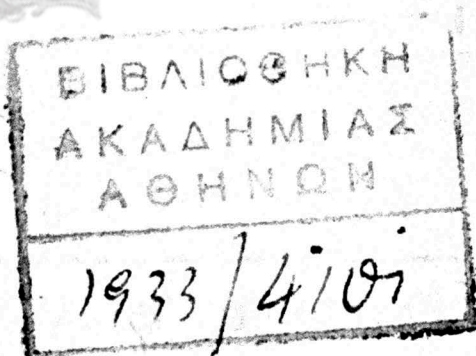 ΒΙΒΛΙΟΘΗΚΗ
ΑΚΑΔΗΜΙΑΣ
ΑΘΗΝΩΝ
1933/